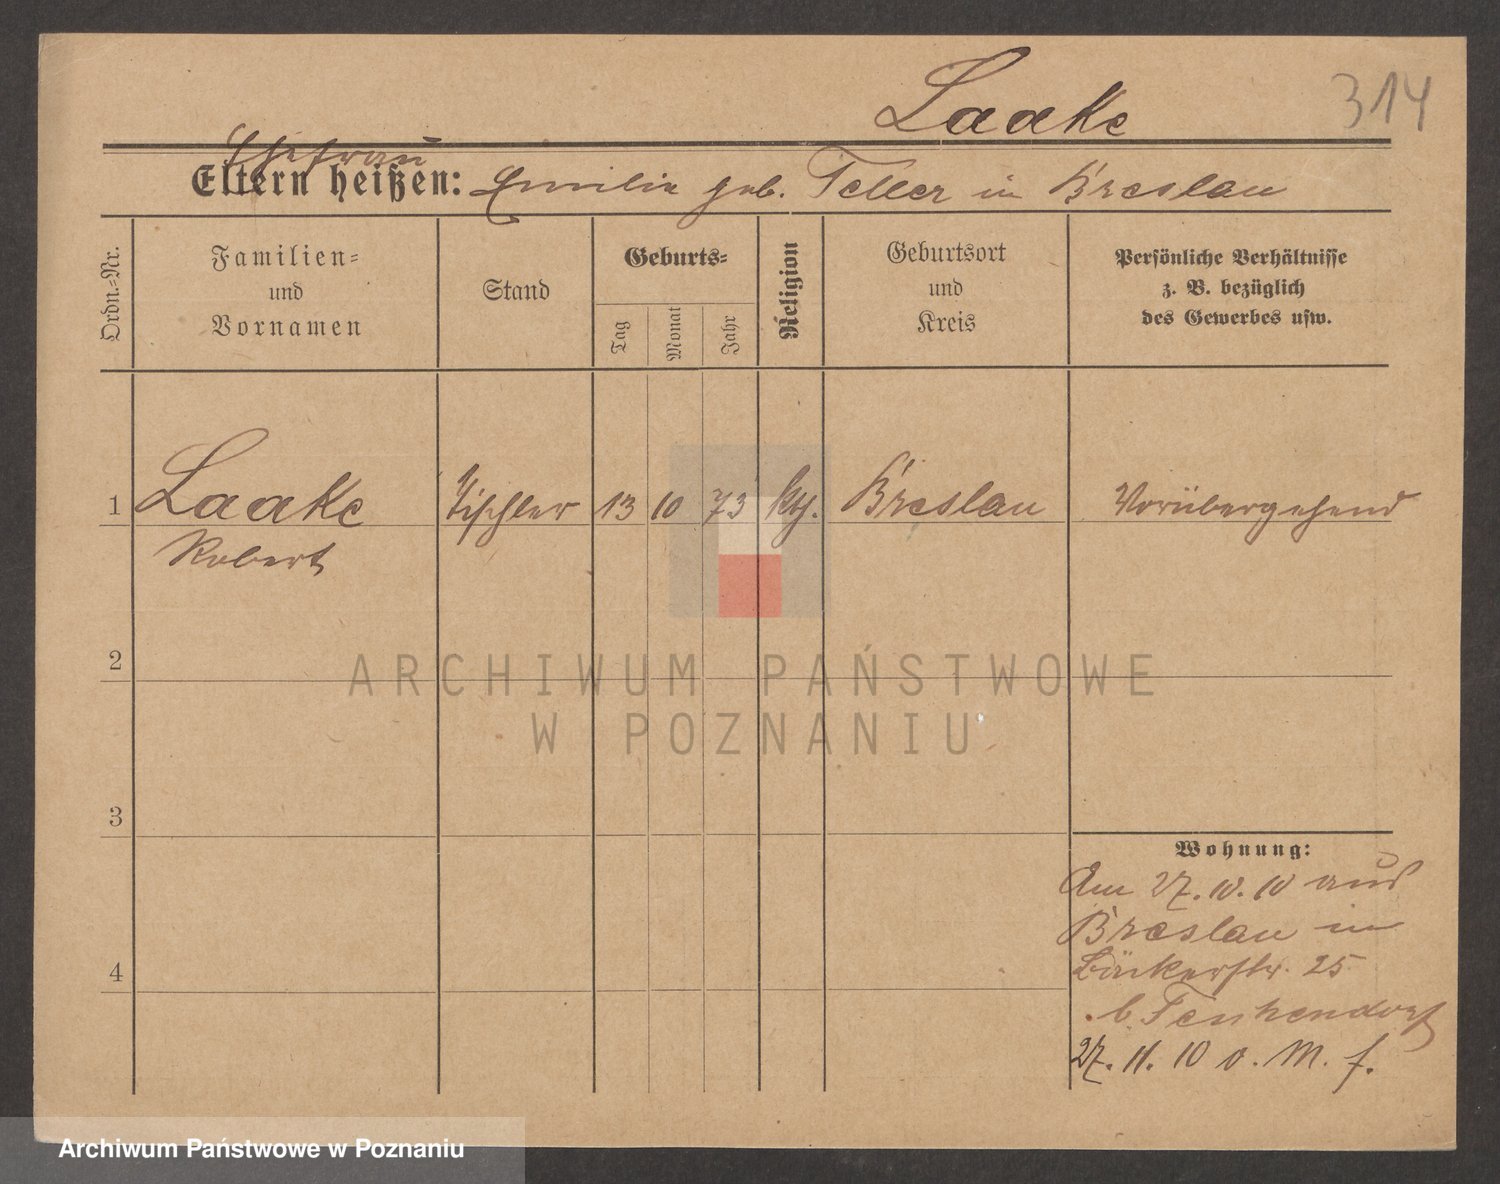 Laake
314
Ehefrau
Eltern heißen: Emilie geb. Teller in Breslau
Ordn.-Nr.
Familien-
und
Vornamen
Stand
Geburts-
Tag
Monat
Jahr
Religion
Geburtsort
und
Kreis
Persönliche Verhältnisse
z. B. bezüglich
des Gewerbes usw.
1 Laake Tischler 13 10 73 kth. Breslau Vorübergehend
Robert
2
3
4
Wohnung:
Am 27.10.10 aus
Breslau in
Bäckerstr. 25
b.
27. 11. 10 o. M. f.
ARCHIWUM PAŃSTWOWE
W POZNANIU
Archiwum Państwowe w Poznaniu